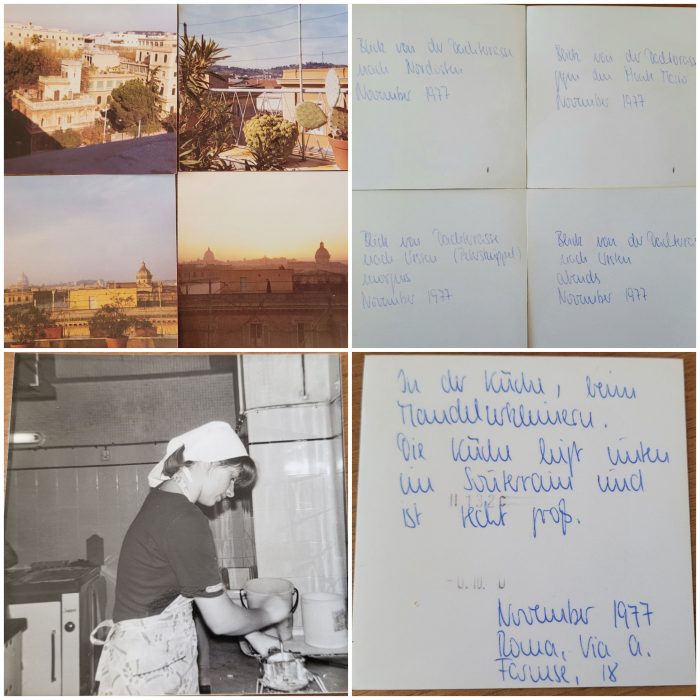 Blick von der Dachterasse
nach Nordosten
November 1977
Blick von der Dachterrasse
gegen den Monte Mario
November 1977
Blick von Dachterrasse
nach Westen (Peterskuppel)
morgens
November 1977
Blick von der
nach Westen
abends
November 1977
In der Küche, beim
Mandelzerkleinern.
Die Küche liegt unten
im Souterrain und
ist recht groß.
November 1977
Roma, Via A.
Farnese, 18